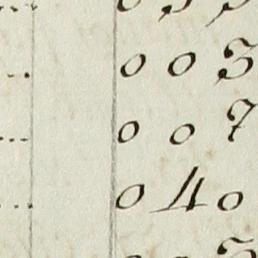 .. 0 0 3
... 0 0 7
... 0 4 0